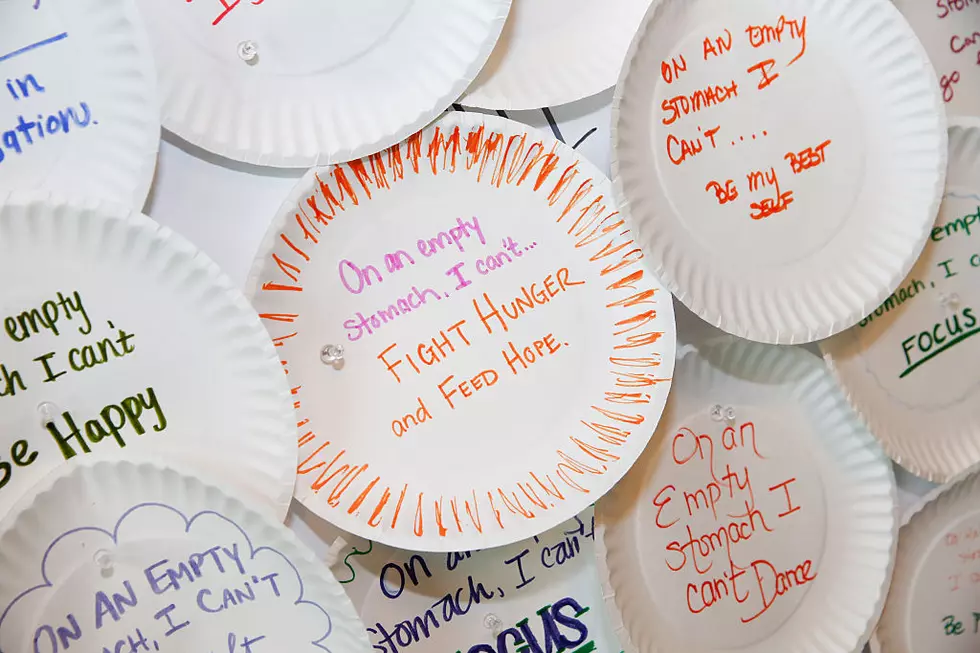 in
ON AN EMPTY
STOMACH I
CAN'T ....
BE MY BEST
SELF
go
On an empty
stomach, I can't...
FIGHT HUNGER
and FEED HOPE.
empty
I can't
Be Happy
I
FOCUS
On an
Empty
stomach I
can't Dance
ON AN EMPTY
I CAN'T
On
stomach, I can't
Be